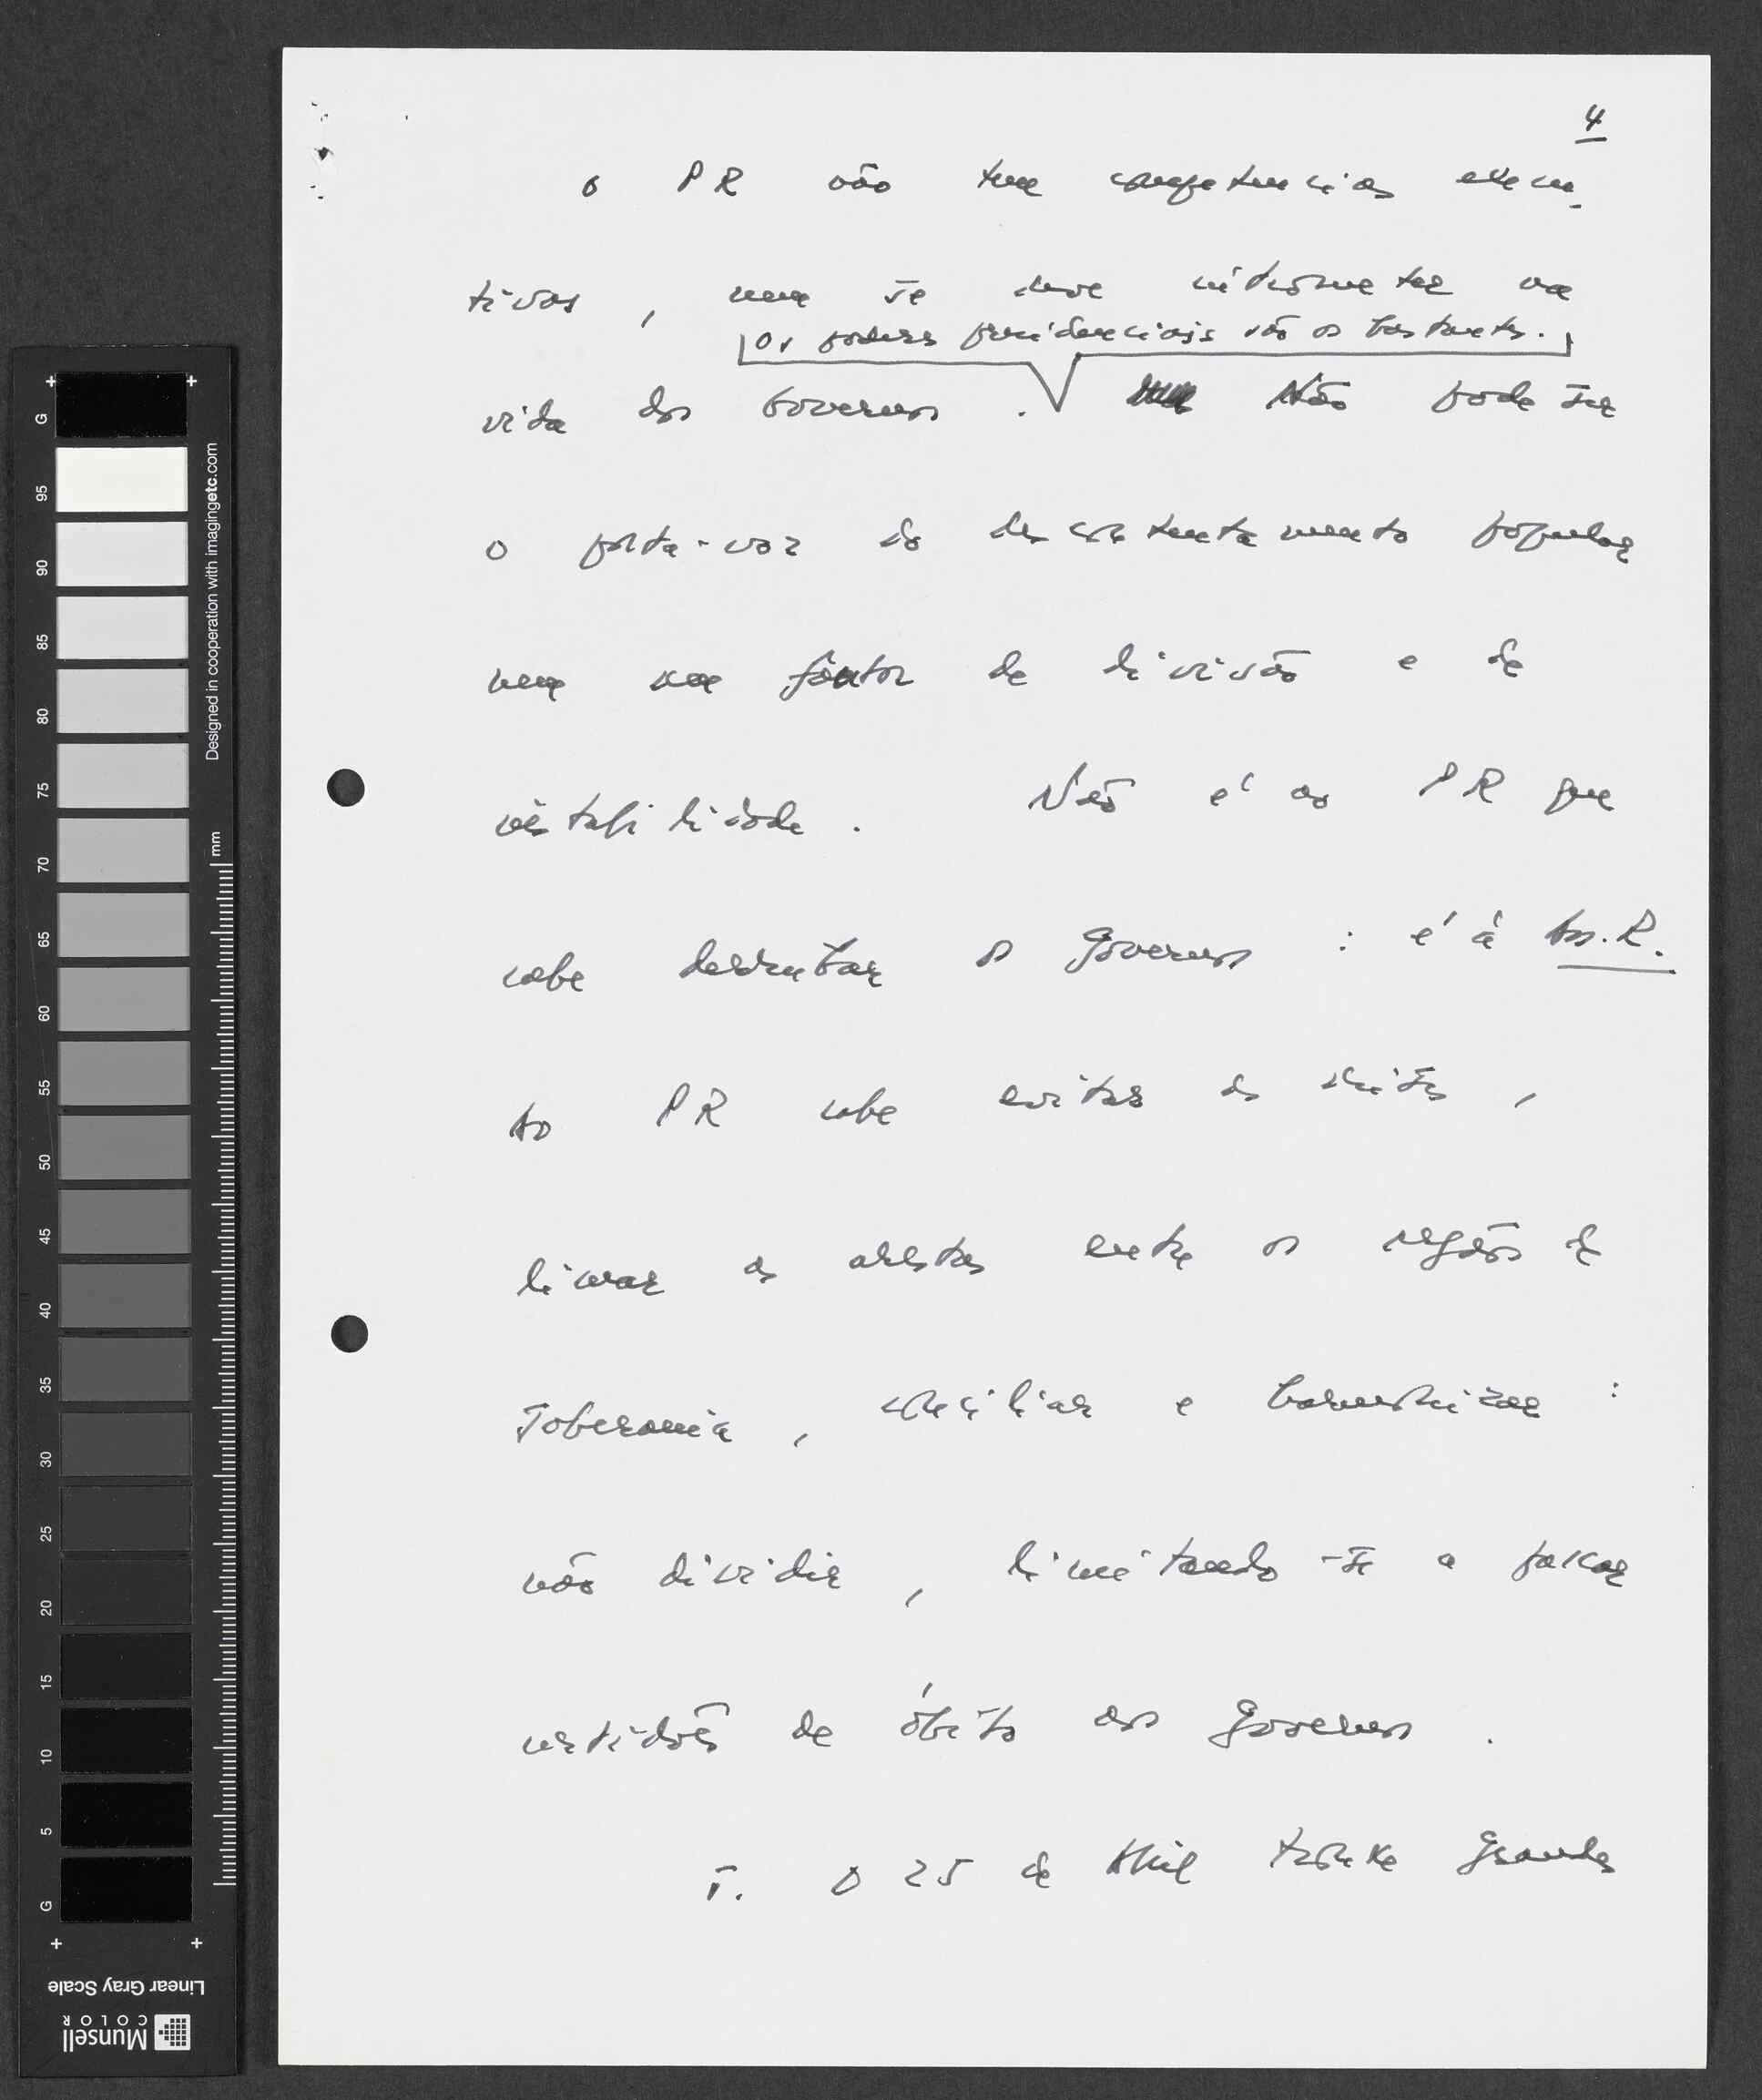 4
O PR não tem competencias execu_
tivas, nem se deve intrometer na
[Os poderes presidenciais são os bastantes.]
vida dos Governos. Não pode ser
o porta-voz do descontentamento popular
nem um fautor de divisão e de
instabilidade. Não é ao PR que
cabe derrubar os governos: é à As. R.
Ao PR cabe evitar as crises,
limar as arestas entre os orgãos de
soberania, conciliar e harmonizar:
não dividir, limitando-se a passar
certidões de óbito aos governos.
5. O 25 de Abril trouxe grandes
G
95
90
85
80
75
70
65
60
55
50
45
40
35
30
25
20
15
10
5
G
mm
Designed in cooperation with imagingetc.com
Linear Gray Scale
Munsell
COLOR